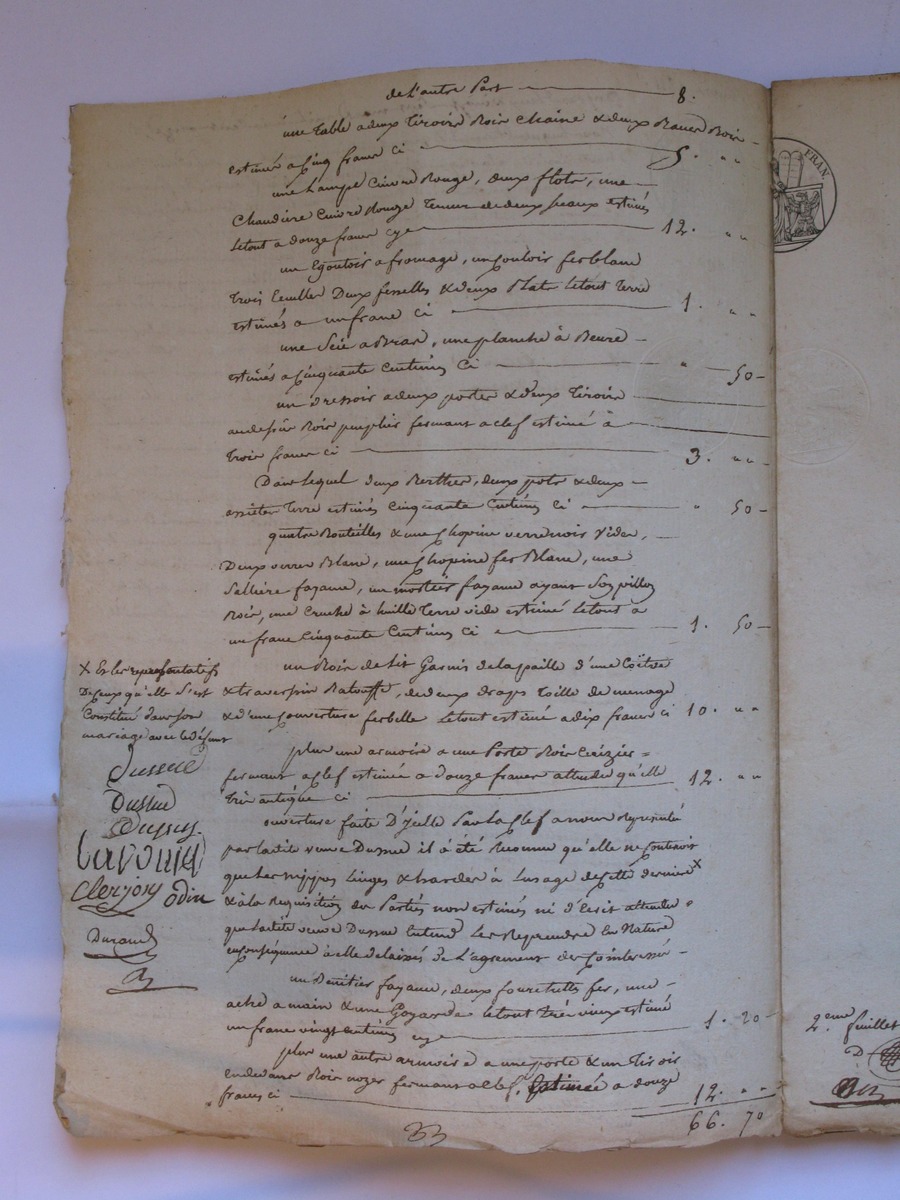 de L'autre Part 8.
une table a deux tiroirs Bois chaine & deux Bancs Bois
estimés a Cinq francs ci 5. " "
une Lampe Cuivre Rouge, deux flots, une
Chaudière Cuivre Rouge tenue de deux seaux estimés
letout a douze francs cy 12. " "
un Egoutoir a fromage, un Couloir fer blanc
trois Ceuiller Deux fesselles & deux Plats letout terre
estimés a un franc ci 1. " "
une Scie a Bras, une planche à Beure
estimés a Cinquante Centimes Ci " 50
un dressoir a deux portes & deux tiroirs
audessus Bois peuplier fermant a clef estimé à
trois francs ci 3. " "
Dans lequel deux Berthes, deux pots & deux
assiettes terre estimés Cinquante Centimes Ci " 50
quatre Bouteilles & une Chopine verre noir vides,
Deux verres Blanc, une Chopine fer Blanc, une
Sallière fayance, un mortier fayance ayant Son pillon
Bois, une Cruche à huille terre vide estimé letout a
un franc Cinquante Centimes Ci 1. 50
un Bois de lit Garnis de la paille d'une Coëtre
& traversin Batouffe, de deux draps toille de menage
& d'une Couverture letout estimé a dix francs ci 10. " "
plus une armoire a une Porte Bois Cerizier
fermant a Clef estimée a douze francs attendu qu'elle
très antique ci 12. " "
ouverture faite D'icelle Par la Clef a nous Représenté
par la dite veuve Dussue il à été Reconnu qu'elle ne Contenoit
que Les nippes linges & hardes à L'usage de Cette derniere X
& à la Requisition des Parties non estimés ni d'Ecrit attendu
que ladite veuve Dussue Entend Les Reprendre En Nature
en Conséquence à elle delaissés de L'agrement des Cointeressés
un Benitier fayance, deux fer, une
ache a main & une Goyarde letout très vieux estimé
un franc vingt Centimes cy 1. 20
plus une autre armoire a une porte & un tiroir
en dedans Bois noyer fermant a clef. Estimée a douze
francs ci 12. " "
66. 70
X Et les representatifs
De Ceux qu'elle S'est
Constitué dans son
mariage avec le Défunt
Dussue
Dussue
Dupuy
Clerjon odin
Durand
33
FRAN.
2.eme feuillet